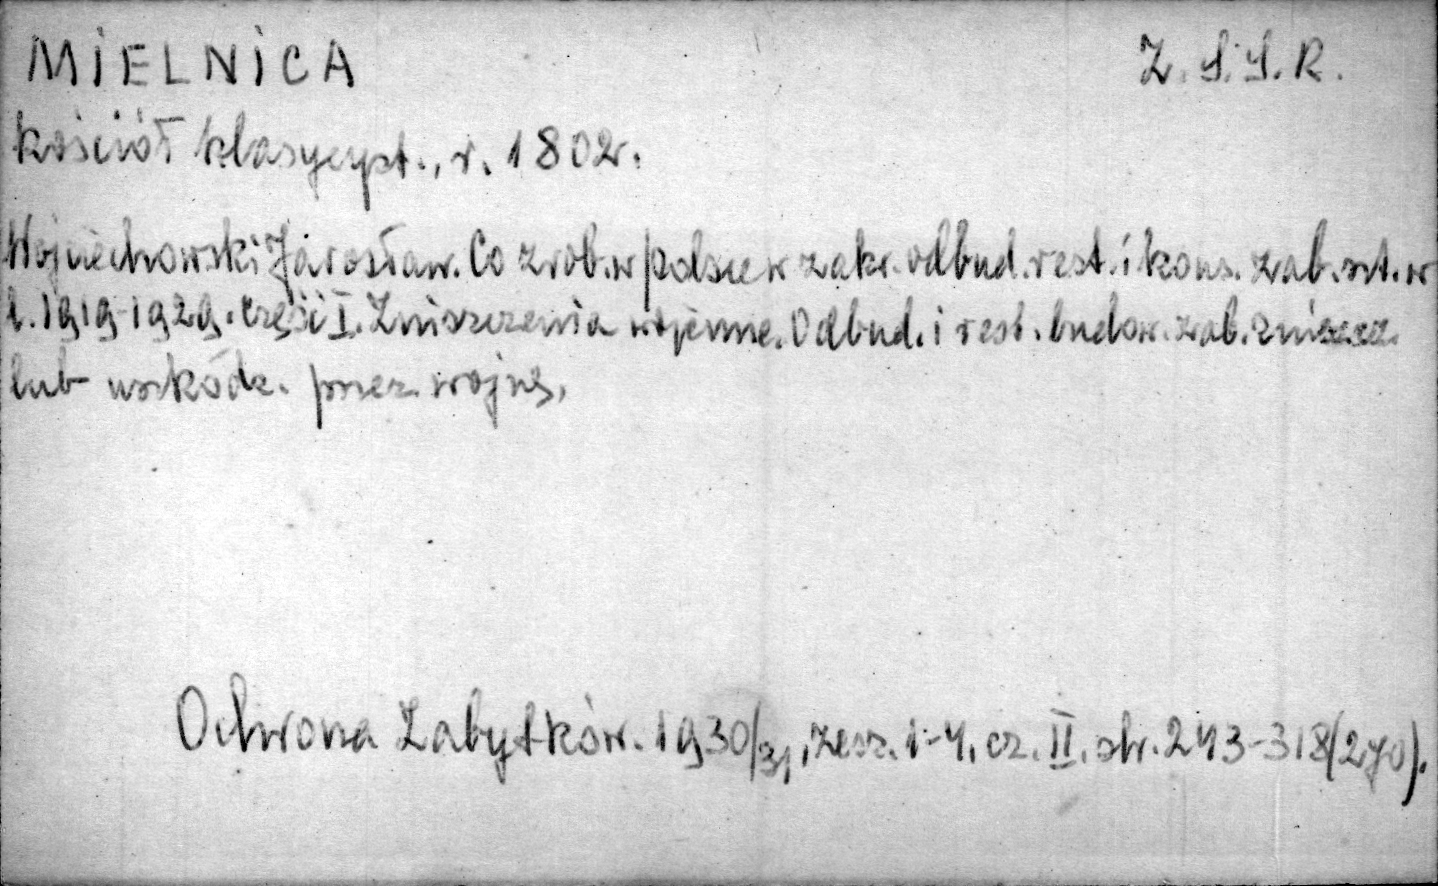 MIELNICA Z.S.S.R.
kościół klasycyst., r. 1802r.
Wojciechowski Jarosław. Co zrob. w Polsce w zakr. odbud. rest. i kons. zab. szt. w
l. 1919-1929. Części I. Zniszczenia wojenne. Odbud. i rest. budow. zab. zniszcz.
lub uszkodz. przez wojnę.
Ochrona Zabytków. 1930/31, zesz. 1-4, cz. II. str. 243-318 (270).